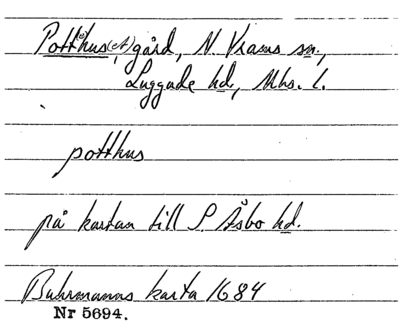 Potthus(et), gård, N. Vrams sn.,
Luggude hd, Mhs. l.
potthus
på kartan till S. Åsbo hd.
Buhrmanns karta 1684
Nr 5694.